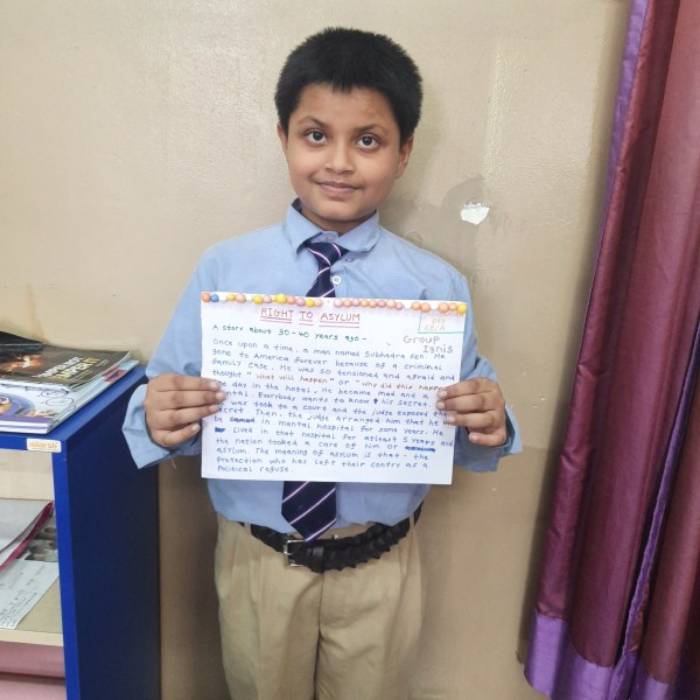 RIGHT TO ASYLUM
A story about 30-40 years ago -
Group
Ignis
Once upon a time, a man named Subhadra Sen. He
gone to America forever because of a criminal
family case. He was so tensioned and afraid and
thought " what will happen" or "why did this happen
one day in the hotel. He became mad and a
mental. Everybody wants to know his secret.
was took to a court and the judge exposed the
secret Then, the judge arranged him that he w
be in mental hospital for some years. He
lives in that hospital for atleast 5 years and
the nation tooked a care of him or
asylum. The meaning of asylum is that - the
Protection who has left their contry as a
Political refuse.